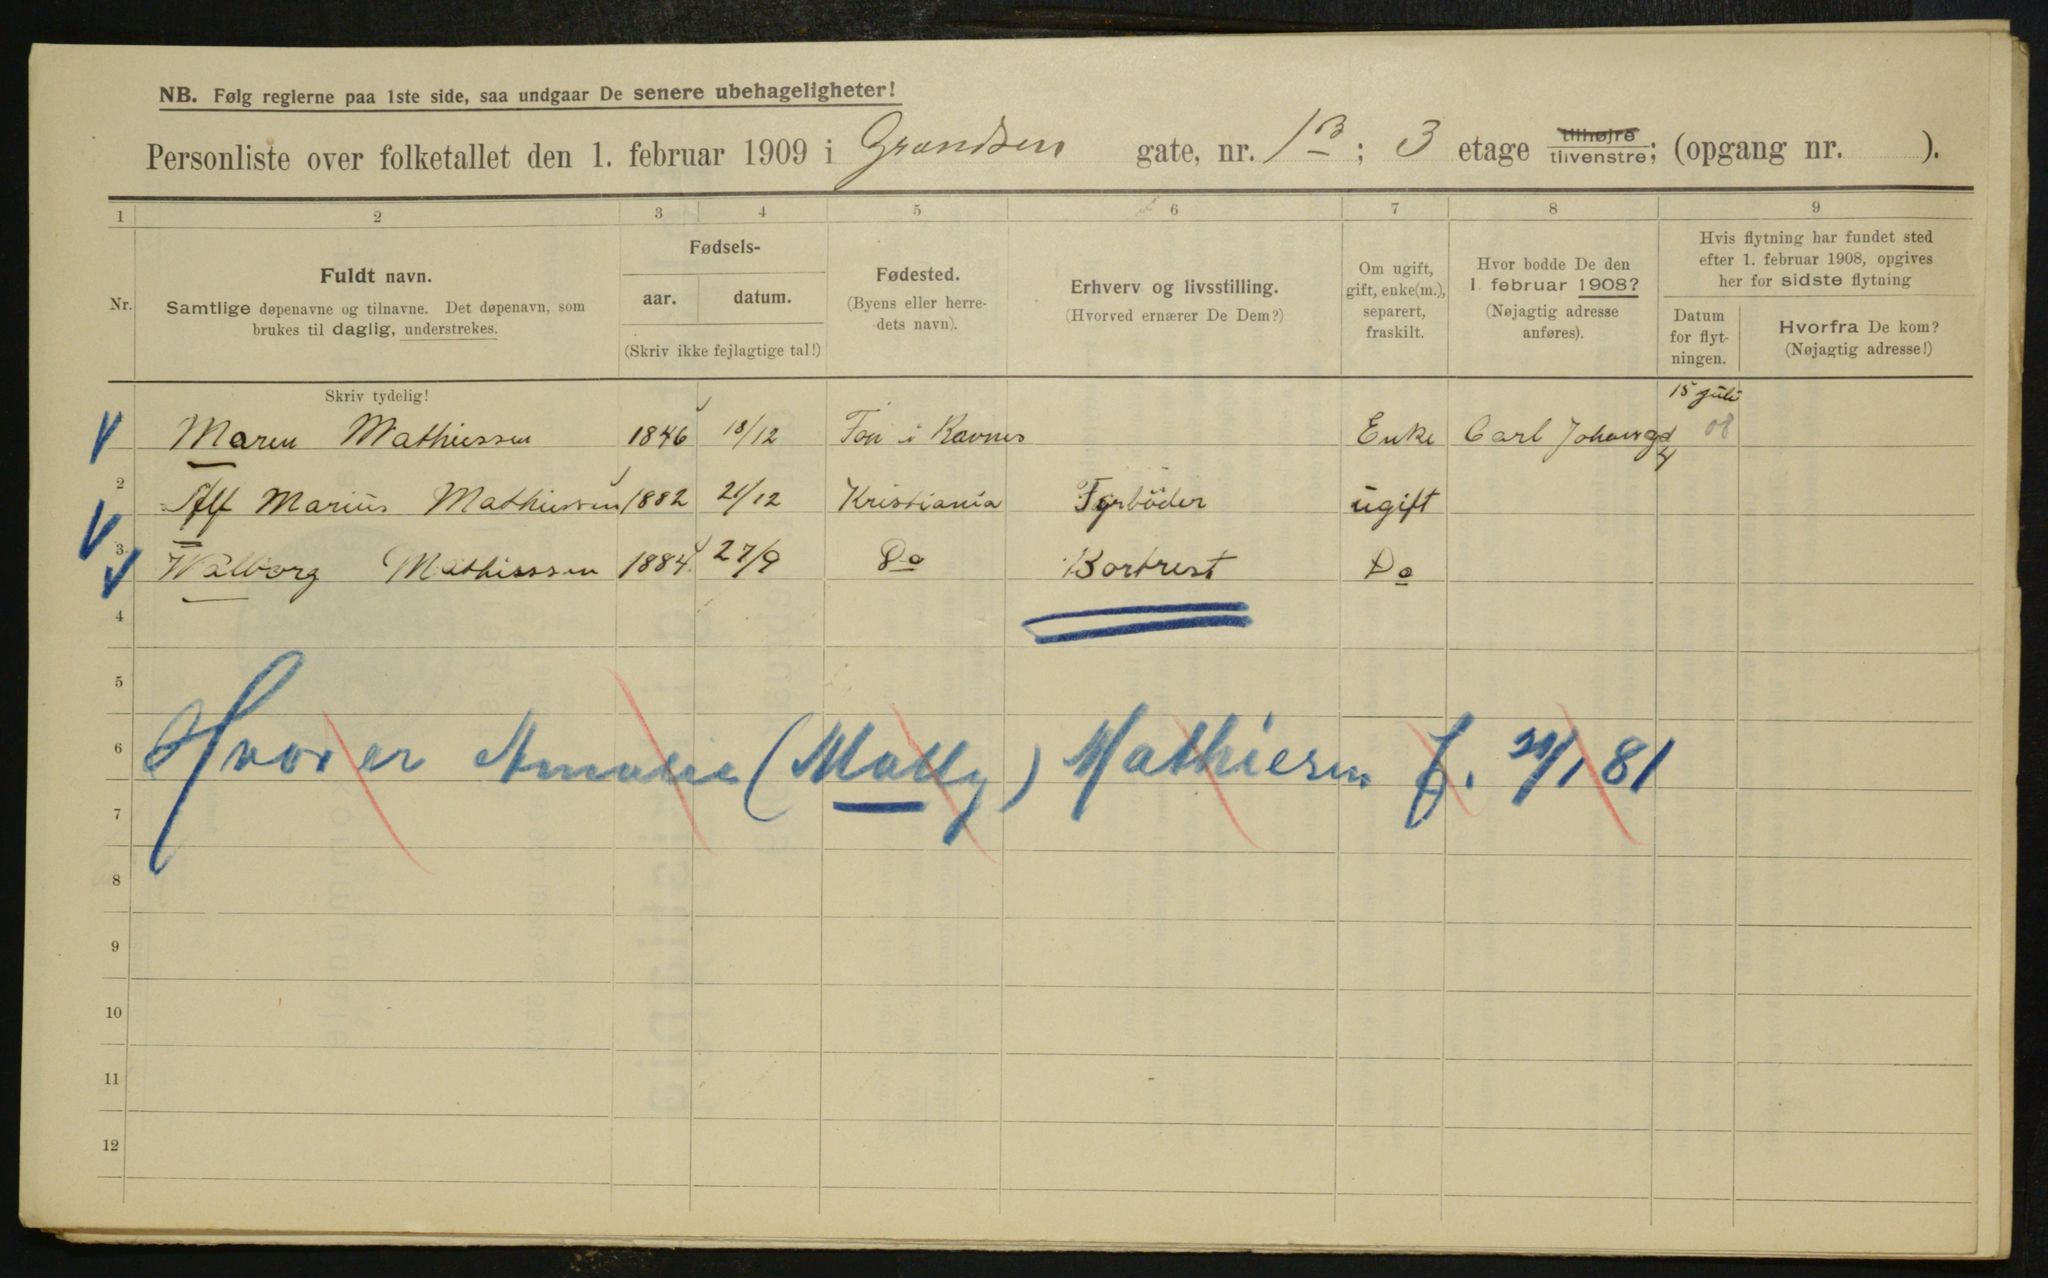 NB. Følg reglerne paa 1ste side, saa undgaar De senere ubehageligheter!
Personliste over folketallet den 1. februar 1909 i Grændsen gate, nr. 13; 3 etage tilhøjre tilvenstre; (opgang nr. ).
1 2 3 4 5 6 7 8 9
Nr.
Fuldt navn.
Samtlige døpenavne og tilnavne. Det døpenavn, som
brukes til daglig, understrekes.
Fødsels-
aar. datum.
(Skriv ikke fejlagtige tal!)
Fødested.
(Byens eller herre-
dets navn).
Erhverv og livsstilling.
(Hvorved ernærer De Dem?)
Om ugift,
gift, enke(m.),
separert,
fraskilt.
Hvor bodde De den
1. februar 1908?
(Nøjagtig adresse
anføres).
Hvis flytning har fundet sted
efter 1. februar 1908, opgives
her for sidste flytning
Datum
for flyt-
ningen.
Hvorfra De kom?
(Nøjagtig adresse!)
Skriv tydelig!
15 juli
Maren Mathiessen 1846 18/12 Fon i Ravnes Enke Carl Johansgd 4 08
2 Alf Marius Mathiessen 1882 21/12 Kristiania Fyrböder ugift
3 Walborg Mathiessen 1884 27/9 Do Bortrest Do
4
5
6 Hvor er Amalie (Mally) Mathiesen f. 29/1 81
7
8
9
10
11
12